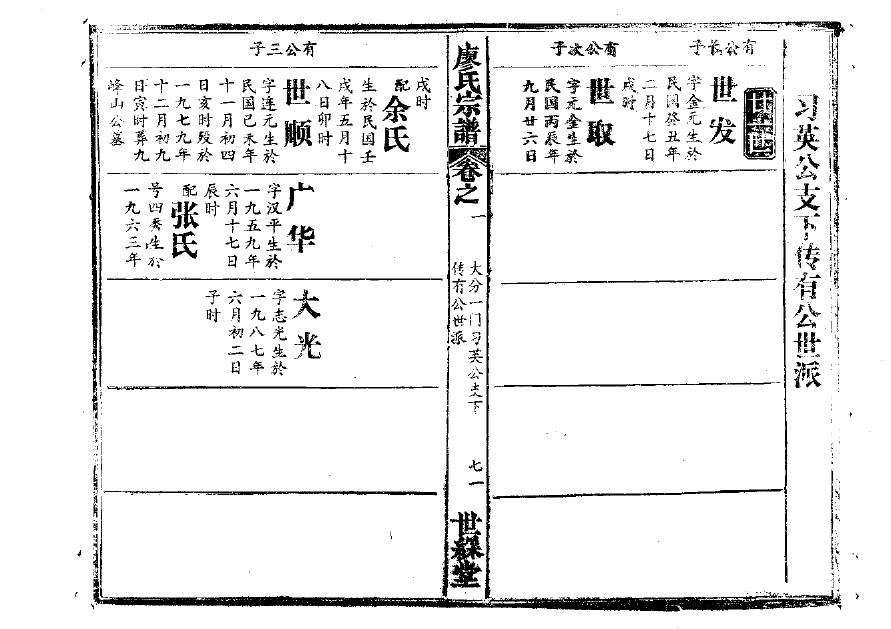 习英公支下传有公世派
有公长子
世发
字金元生於
民国癸丑年
二月十七日
戌时
有公次子
世取
字元金生於
民国丙辰年
九月廿六日
廖氏宗譜
卷之一
大分一门习英公支下
传有公世派
七一
世綵堂
戌时
配余氏
生於民国壬
戌年五月十
八日卯时
有公三子
世顺
字连元生於
民国已未年
十一月初四
日亥时殁於
一九七九年
十二月初九
日寅时葬九
峰山公墓
广华
字汉平生於
一九五九年
六月十七日
辰时
配张氏
号四秀生於
一九六三年
大光
字志光生於
一九八七年
六月初二日
子时